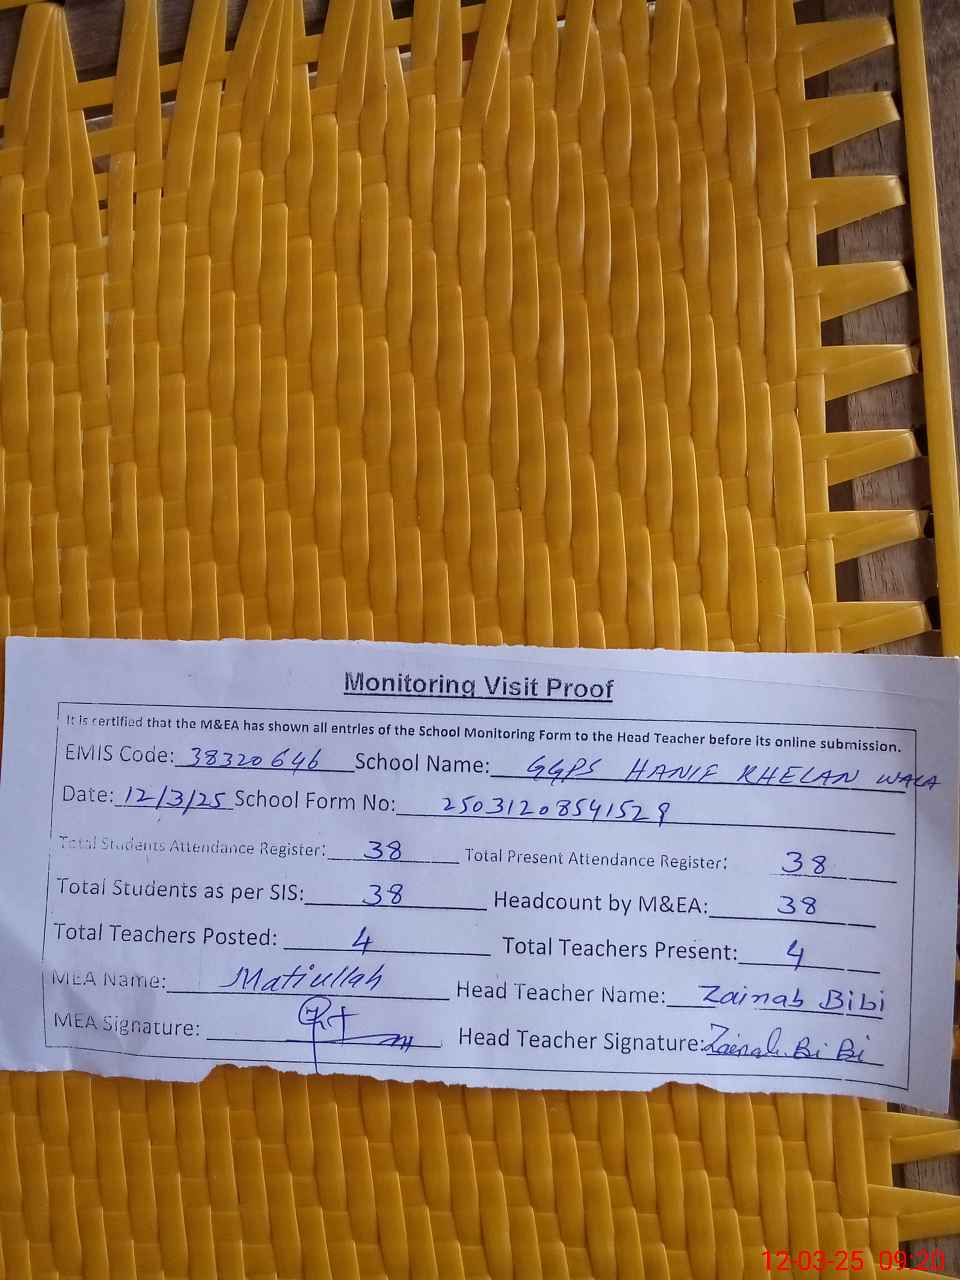 Monitoring Visit Proof
It is certified that the M&EA has shown all entries of the School Monitoring Form to the Head Teacher before its online submission.
EMIS Code: 38320646 School Name: GGPS HANIF KHELAN WALA
Date: 12/3/25 School Form No: 25031208541529
Total Students Attendance Register: 38 Total Present Attendance Register: 38
Total Students as per SIS: 38 Headcount by M&EA: 38
Total Teachers Posted: 4 Total Teachers Present: 4
MEA Name: Matiullah Head Teacher Name: Zainab Bibi
MEA Signature: Head Teacher Signature: Zainab Bi Bi
12-03-25 09:20